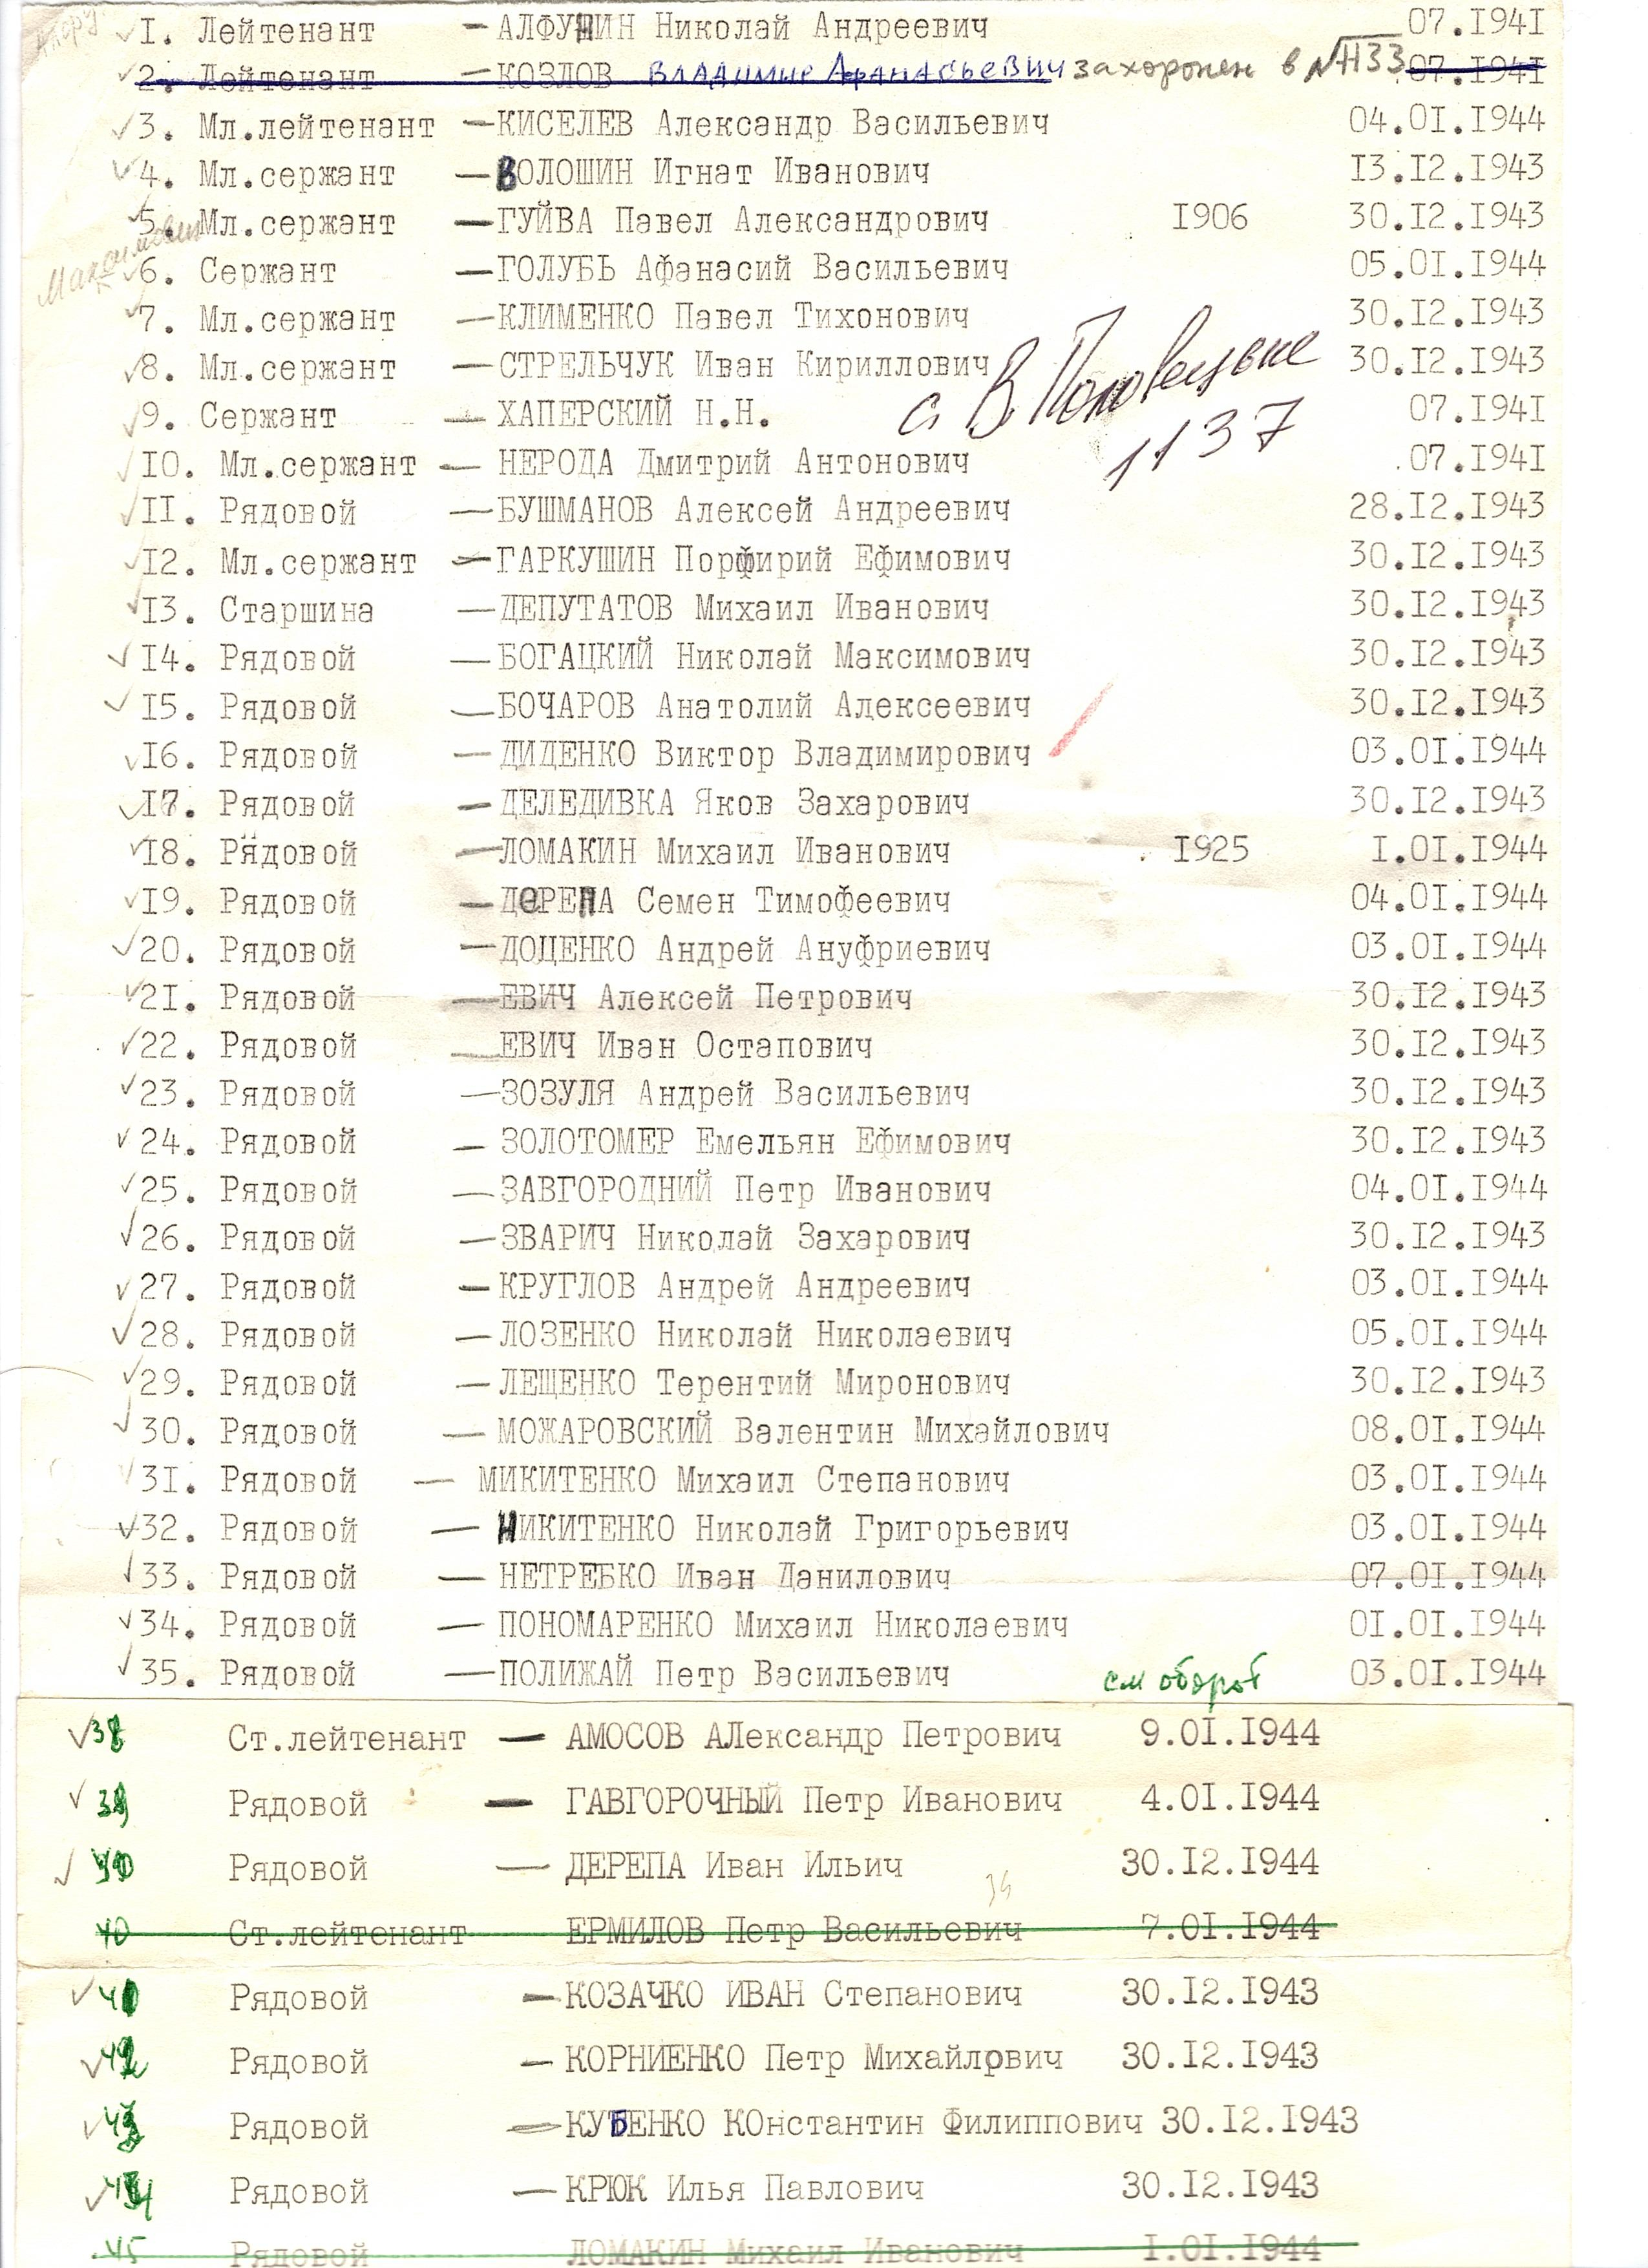 I. Лейтенант - АЛФУНИН Николай Андреевич 07.I94I
2. Лейтенант - КОЗЛОВ Владимир Афанасьевич захоронен в №1133 07.I94I
3. Мл.лейтенант - КИСЕЛЕВ Александр Васильевич 04.0I.I944
4. Мл.сержант - ВОЛОШИН Игнат Иванович I3.I2.I943
5. Мл.сержант - ГУЙВА Павел Александрович I906 30.I2.I943
Максимович
6. Сержант - ГОЛУБЬ Афанасий Васильевич 05.0I.I944
7. Мл.сержант - КЛИМЕНКО Павел Тихонович 30.I2.I943
8. Мл.сержант - СТРЕЛЬЧУК Иван Кириллович 30.I2.I943
с. В Половецьке
9. Сержант - ХАПЕРСКИЙ Н.Н. 07.I94I
1137
I0. Мл.сержант - НЕРОДА Дмитрий Антонович .07.I94I
II. Рядовой - БУШМАНОВ Алексей Андреевич 28.I2.I943
I2. Мл.сержант - ГАРКУШИН Порфирий Ефимович 30.I2.I943
I3. Старшина - ДЕПУТАТОВ Михаил Иванович 30.I2.I943
I4. Рядовой - БОГАЦКИЙ Николай Максимович 30.I2.I943
I5. Рядовой - БОЧАРОВ Анатолий Алексеевич 30.I2.I943
I6. Рядовой - ДИДЕНКО Виктор Владимирович 03.0I.I944
I7. Рядовой - ДЕЛЕДИВКА Яков Захарович 30.I2.I943
I8. Рядовой - ЛОМАКИН Михаил Иванович I925 I.0I.I944
I9. Рядовой - ДеРЕПА Семен Тимофеевич 04.0I.I944
20. Рядовой - ДОЦЕНКО Андрей Ануфриевич 03.0I.I944
2I. Рядовой - ЕВИЧ Алексей Петрович 30.I2.I943
22. Рядовой - ЕВИЧ Иван Остапович 30.I2.I943
23. Рядовой - ЗОЗУЛЯ Андрей Васильевич 30.I2.I943
24. Рядовой - ЗОЛОТОМЕР Емельян Ефимович 30.I2.I943
25. Рядовой - ЗАВГОРОДНИЙ Петр Иванович 04.0I.I944
26. Рядовой - ЗВАРИЧ Николай Захарович 30.I2.I943
27. Рядовой - КРУГЛОВ Андрей Андреевич 03.0I.I944
28. Рядовой - ЛОЗЕНКО Николай Николаевич 05.0I.I944
29. Рядовой - ЛЕЩЕНКО Терентий Миронович 30.I2.I943
30. Рядовой - МОЖАРОВСКИЙ Валентин Михайлович 08.0I.I944
3I. Рядовой - МИКИТЕНКО Михаил Степанович 03.0I.I944
32. Рядовой - НИКИТЕНКО Николай Григорьевич 03.0I.I944
33. Рядовой - НЕТРЕБКО Иван Данилович 07.0I.I944
34. Рядовой - ПОНОМАРЕНКО Михаил Николаевич 0I.0I.I944
35. Рядовой - ПОЛИЖАЙ Петр Васильевич см оборот 03.0I.I944
38 Ст.лейтенант - АМОСОВ АЛександр Петрович 9.0I.I944
39 Рядовой - ГАВГОРОЧНЫЙ Петр Иванович 4.0I.I944
40 Рядовой - ДЕРЕПА Иван Ильич 30.I2.I944
40 Ст.лейтенант ЕРМИЛОВ Петр Васильевич 7.0I.I944
41 Рядовой - КОЗАЧКО ИВАН Степанович 30.I2.I943
42 Рядовой - КОРНИЕНКО Петр Михайлрвич 30.I2.I943
43 Рядовой - КУБЕНКО КОнстантин Филиппович 30.I2.I943
44 Рядовой - КРЮК Илья Павлович 30.I2.I943
45 Рядовой ЛОМАКИН Михаил Иванович I.0I.I944